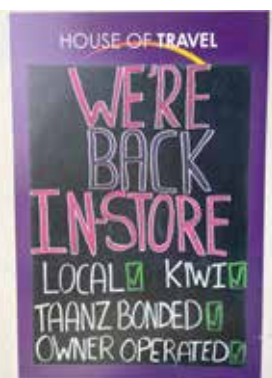 HOUSE OF TRAVEL
WE'RE
BACK
IN-STORE
LOCAL ☑ KIWI ☑
TAANZ BONDED ☑
OWNER OPERATED ☑